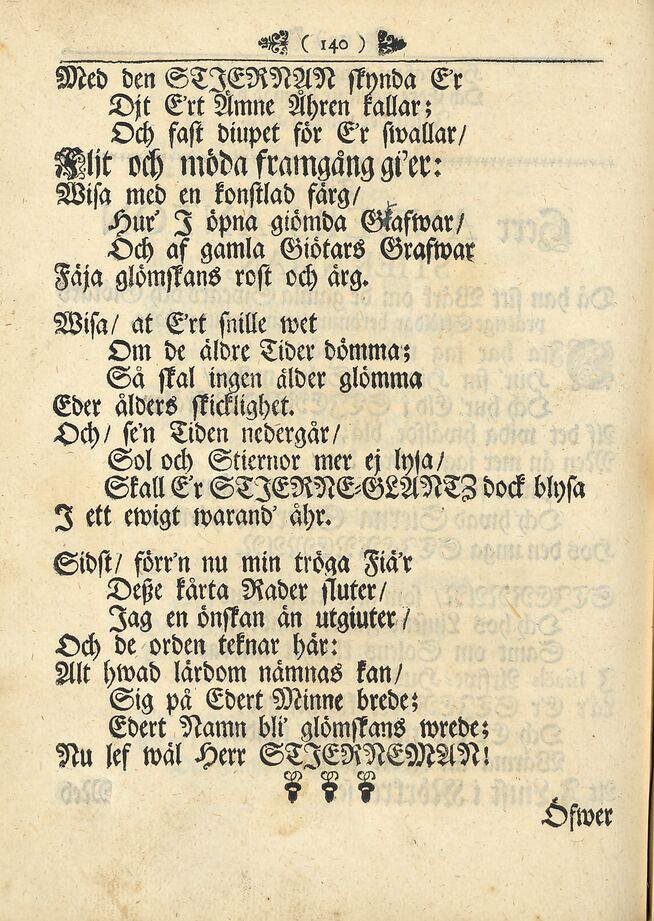 ( 140 )
Med den STJERNAN skynda E'r
Djt E'rt Ämne Åhren kallar;
Och fast diupet för E'r swallar/
Flit och möda framgång gi'er:
Wisa med en konstlad färg/
Hur' J öpna giömda Grafwar/
Och af gamla Giötars Grafwar
Fäja glömskans rost och ärg.
Wisa/ at E'rt snille wet
Om de äldre Tider dömma;
Så skal ingen ålder glömma
Eder ålders skicklighet.
Och/ se'n Tiden nedergår/
Sol och Stiernor mer ej lysa/
Skall E'r STJERNE-GLANTZ dock blysa
J ett ewigt warand' åhr.
Sidst/ förr'n nu min tröga Fiä'r
Deße kårta Rader sluter/
Jag en önskan än utgiuter/
Och de orden teknar här:
Alt hwad lärdom nämnas kan/
Sig på Edert Minne brede;
Edert Namn bli' glömskans wrede;
Nu lef wäl Herr STJERNEMAN!
Öfwer